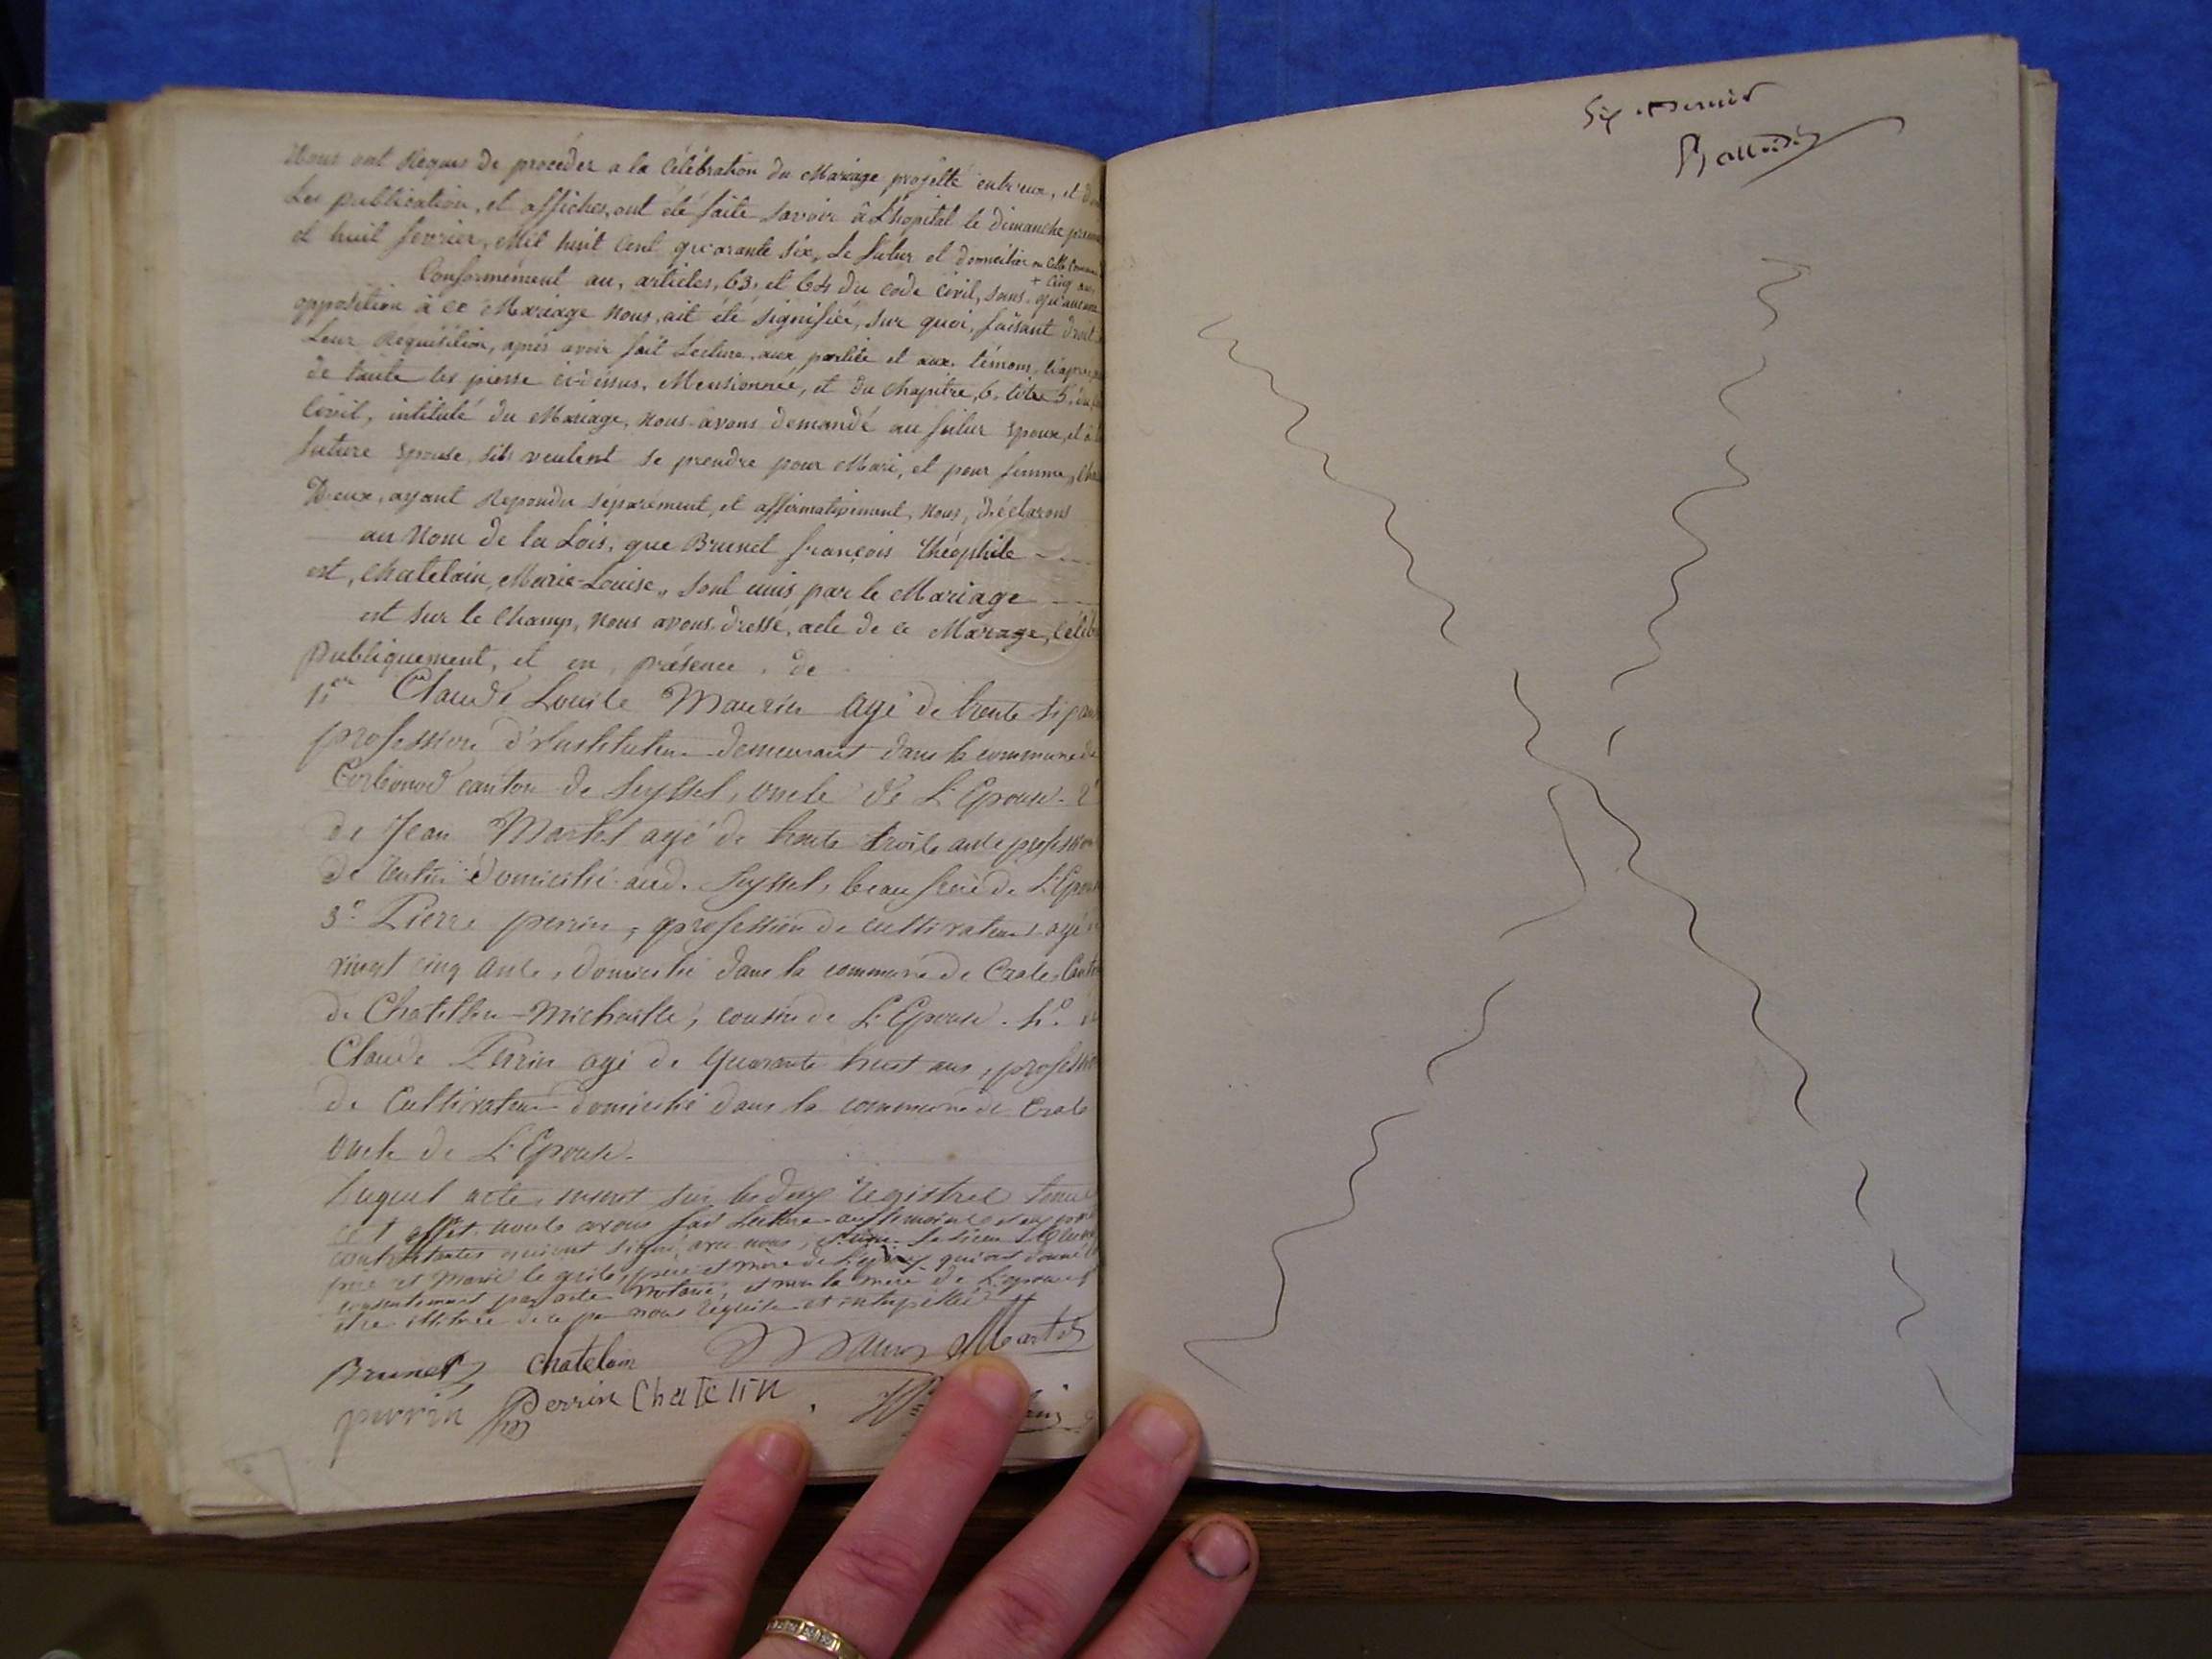 Nous ont Requis de procéder a la Célébration du Mariage projetté entr'eux, et
Les publication, et affiches, ont été faite savoir à L'hopital le dimanche
et huit fevrier, Mil huit Cent quarante six, Le futur et domicilier en Cette Commune
+ Cinq ans
Conformément au, articles, 63, et 64 du code civil, sans qu'aucune
opposition à ce Mariage Nous, ait été signifiée, sur quoi, faisant droit
Leur Réquisition, après avoir fait Lecture, aux partité et aux témoins,
de toute les piesse ci-dessus, Mensionnée, et du Chapitre, 6, titre 5, du
Civil, intitulé du Mariage, Nous avons demandé au futur Epoux, et à
future Epouse, s'ils veulent se prendre pour Mari, et pour femme,
Deux, ayant Repondu séparément, et affirmativement, Nous, déclarons
au Nom de la Lois, que Brunet françois théophile
est, Chatelain, Marie-Louise, sont unis par le Mariage
est sur le Champ, Nous avons dressé, acte de ce Mariage,
Publiquement, et en présence, de
1er Claude Louis Maurin agé de trente six ans
profession d'Instituteur demeurant dans la commune de
Corbonod canton de Seyssel, oncle de L'Epouse. 2°
de Jean Martel agé de trente trois ans profession
de domicilié aud. Seyssel, beau frère de L'Epouse
3° Pierre perrin, profession de cultivateur agé
vingt cinq ans, domicilié dans la commune de Craz, Canton
de Chatillon-Michaille, cousin de L'Epouse. 4°.
Claude Perrin agé de quarante huit ans, profession
de Cultivateur domicilié dans la commune de Craz
oncle de L'Epouse.
Duquel acte, inscrit sur les deux registres tenus
cet effet nous avons fait Lecture aux témoins et aux
contractantes qui ont signé avec nous,
père et mère de qui ont donné
consentement par acte notarié, et non la mère de L'épouse
illitrée de ce par nous requise et interpellée
Brunet Chatelain Maurin Martel
perrin Perrin Chatelin
Six et dernier